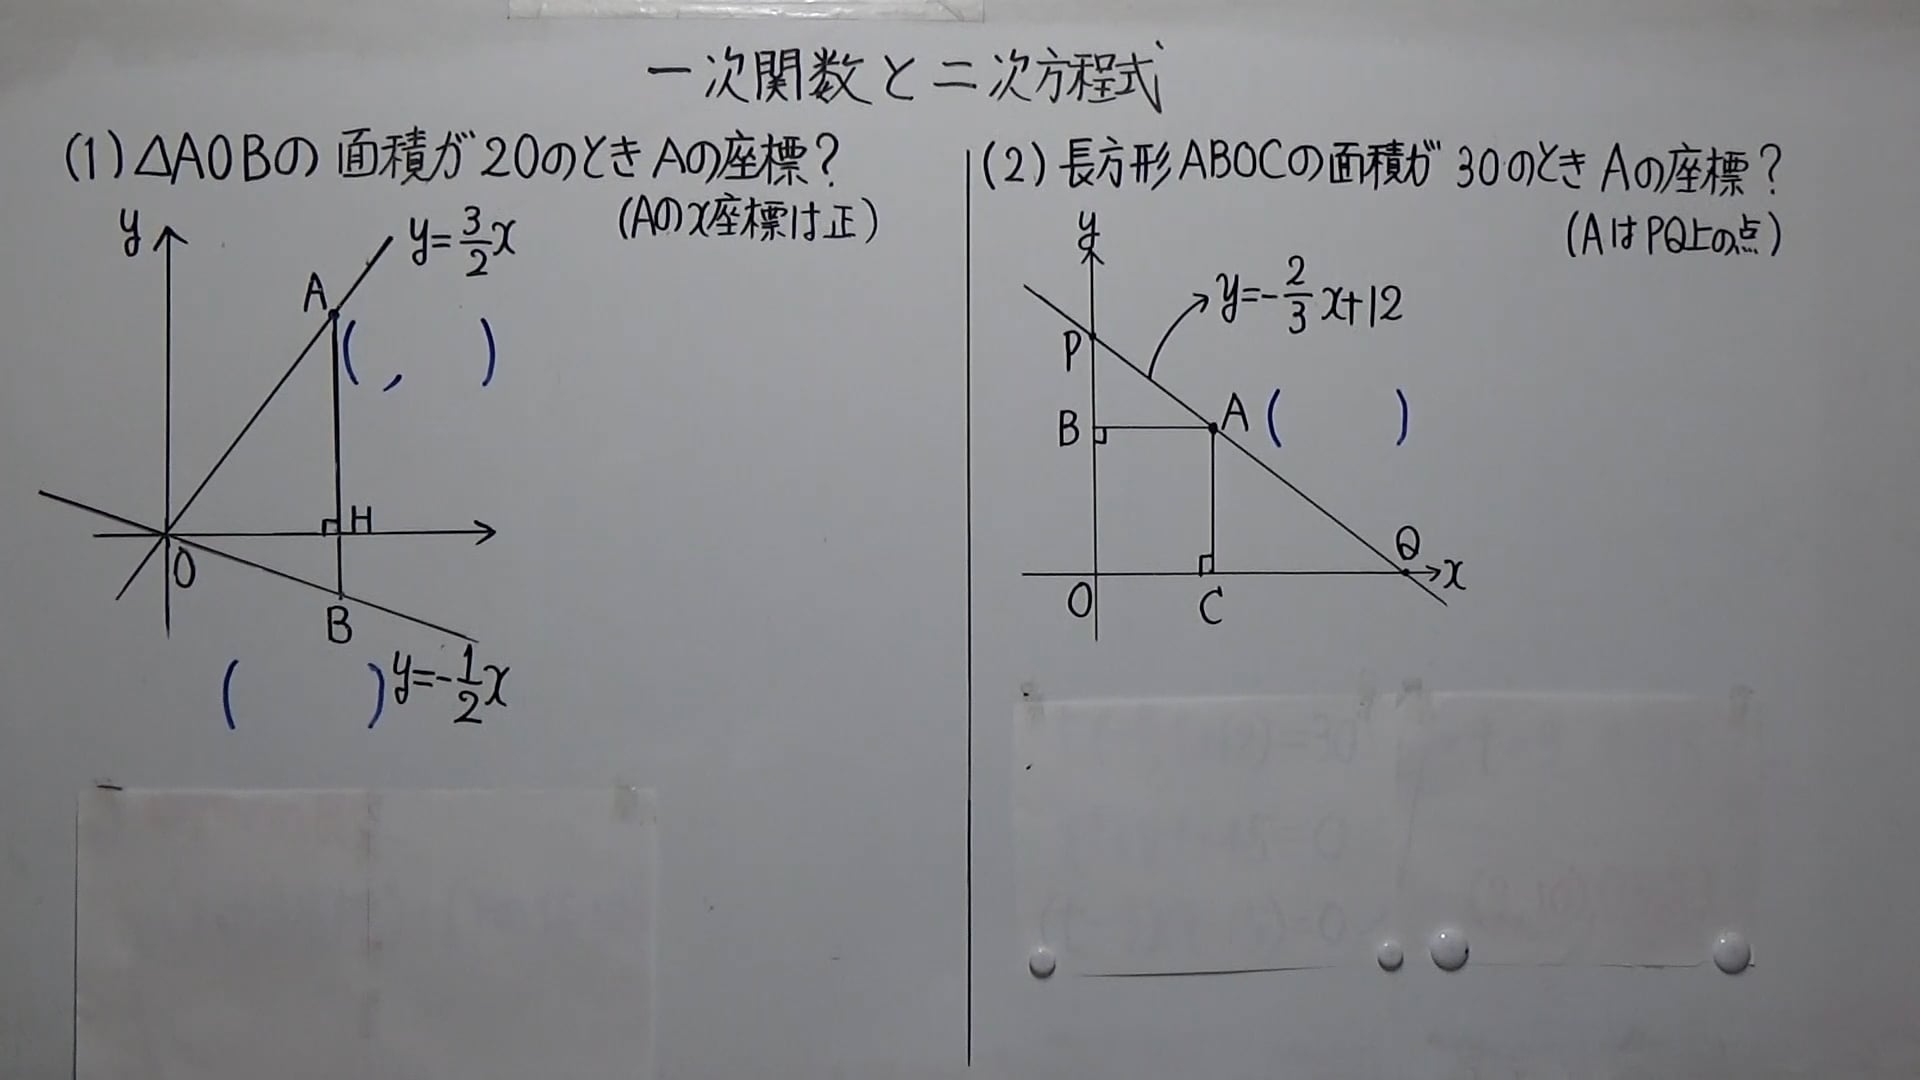 一次関数と二次方程式
(1) △AOBの面積が20のときAの座標?
(Aのx座標は正)
y
y=3/2x
A
( , )
H
O
B
( )
y=-1/2x
(2) 長方形ABOCの面積が30のときAの座標?
(AはPQ上の点)
y
y=-2/3x+12
P
B
A ( )
Q
x
O
C